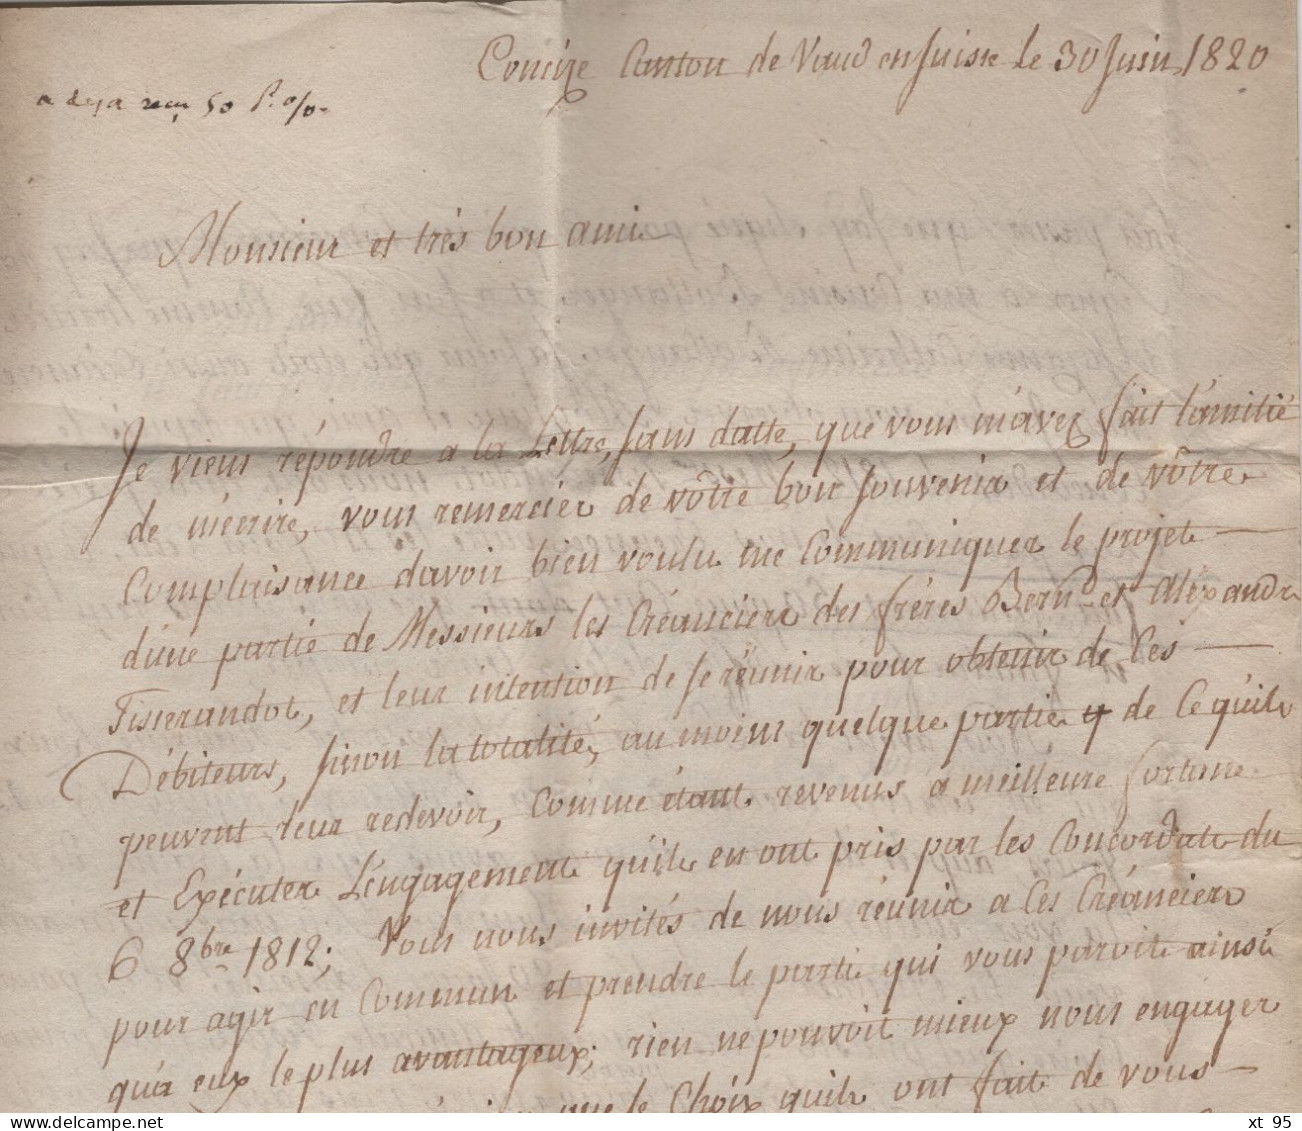 Concise Canton de Vaud en Suisse le 30 Juin 1820
a deja reçu 50 P. o/o
Monsieur et très bon ami
Je viens répondre a la Lettre, sans datte, que vous m'avez fait l'amitié
de mécrire, vous remercier de vôtre bon souvenir et de vôtre
Complaisance davoir bien voulu me Communiquer le projet
dúne partie de Messieurs les Créanciers des frères Bernd et Aléxandre
Tisserandot, et leur intention de se réunir pour obtenir de Ces
Débiteurs, sinon la totalité, au moins quelque partie de Ce quils
peuvent leur redevoir, Comme étant revenus a meilleure fortune
et Exécuter L'engagement quils en ont pris par les Concordats du
6 8bre 1812; Vous nous invités de nous réunir a Ces Créanciers
pour agir en Commun et prendre le partie qui vous paroit ainsi
qu'a eux le plus avantageux; rien ne pouvoit mieux nous engager
que le Choix quils ont fait de vous
xt 95